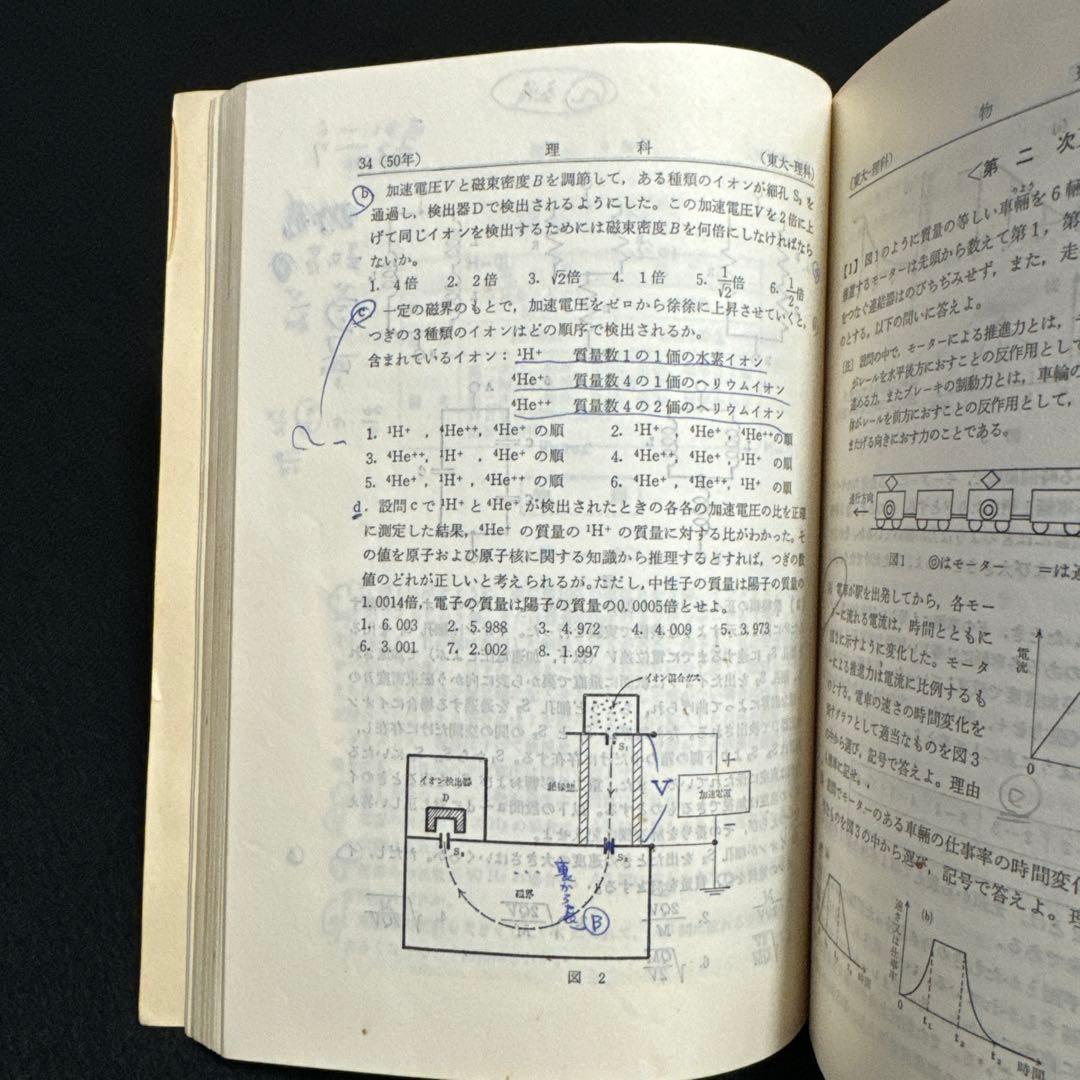 34 (50年)
理 科
(東大-理科)
b 加速電圧Vと磁束密度Bを調節して，ある種類のイオンが細孔 S₃ を
通過し，検出器Dで検出されるようにした。この加速電圧Vを2倍に上
げて同じイオンを検出するためには磁束密度Bを何倍にしなければなら
ないか。
1. 4倍 2. 2倍 3. √2倍 4. 1倍 5. 1/√2倍 6. 1/2倍
c 一定の磁界のもとで，加速電圧をゼロから徐徐に上昇させていくと，
つぎの3種類のイオンはどの順序で検出されるか。
含まれているイオン： ¹H⁺ 質量数1の1価の水素イオン
⁴He⁺ 質量数4の1価のヘリウムイオン
⁴He⁺⁺ 質量数4の2価のヘリウムイオン
1. ¹H⁺ ，⁴He⁺⁺，⁴He⁺ の順 2. ¹H⁺ ，⁴He⁺ ，⁴He⁺⁺の順
3. ⁴He⁺⁺，¹H⁺ ，⁴He⁺ の順 4. ⁴He⁺⁺，⁴He⁺ ，¹H⁺ の順
5. ⁴He⁺，¹H⁺ ，⁴He⁺⁺ の順 6. ⁴He⁺，⁴He⁺⁺，¹H⁺ の順
d．設問cで ¹H⁺ と ⁴He⁺ が検出されたときの各各の加速電圧の比を正確
に測定した結果，⁴He⁺ の質量の ¹H⁺ の質量に対する比がわかった。そ
の値を原子および原子核に関する知識から推理するとすれば，つぎの数
値のどれが正しいと考えられるか。ただし，中性子の質量は陽子の質量の
1.0014倍，電子の質量は陽子の質量の0.0005倍とせよ。
1. 6.003 2. 5.988 3. 4.972 4. 4.009 5. 3.973
6. 3.001 7. 2.002 8. 1.997
イオン混合ガス
S₁
イオン検出器
D
絶縁壁
V
+
加速電源
−
S₃
S₂
磁界
裏から表
B
図 2
物
(東大-理科)
<第 二 次
[1] 図1のように質量の等しい車輛を6輛
りょう
推進するモーターは先頭から数えて第1，第
をつなぐ連結器はのびちぢみせず，また，走
のとする。以下の問いに答えよ。
[注] 設問の中で，モーターによる推進力とは，
がレールを水平後方におすことの反作用として
進める力，またブレーキの制動力とは，車輪の
体がレールを前方におすことの反作用として，
またげる向きにおす力のことである。
進行方向
図1 ◎はモーター ＝は連
電車が駅を出発してから，各モー
ーに流れる電流は，時間とともに
図2に示すように変化した。モータ
ーによる推進力は電流に比例するも
のとする。電車の速さの時間変化を
示すグラフとして適当なものを図3
の中から選び，記号で答えよ。理由
も簡単に記せ。
電流
0
区間でモーターのある車輛の仕事率の時間変化
なものを図3の中から選び，記号で答えよ。理
時間
速さ又は仕事率
(b)
0
t₁
t₂
t₃
時間